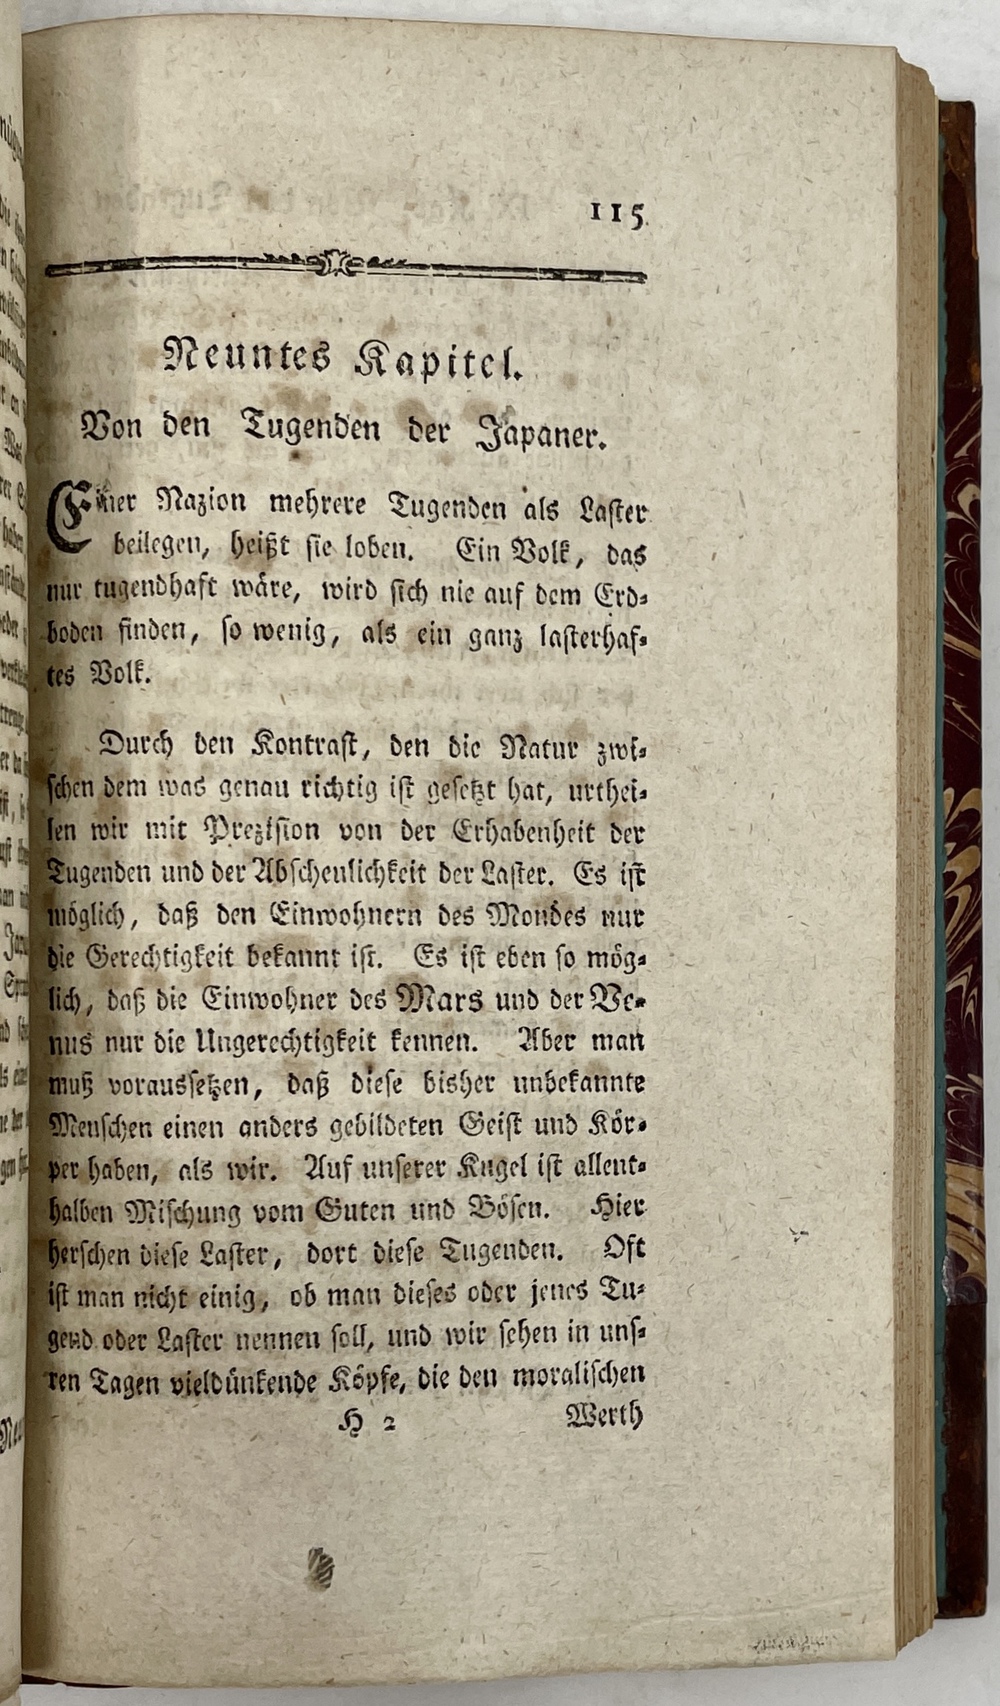 115
Neuntes Kapitel.
Von den Tugenden der Japaner.
Einer Nazion mehrere Tugenden als Laster
beilegen, heißt sie loben. Ein Volk, das
nur tugendhaft wäre, wird sich nie auf dem Erd-
boden finden, so wenig, als ein ganz lasterhaf-
tes Volk.
Durch den Kontrast, den die Natur zwi-
schen dem was genau richtig ist gesetzt hat, urthei-
len wir mit Prezision von der Erhabenheit der
Tugenden und der Abscheulichkeit der Laster. Es ist
möglich, daß den Einwohnern des Mondes nur
die Gerechtigkeit bekannt ist. Es ist eben so mög-
lich, daß die Einwohner des Mars und der Ve-
nus nur die Ungerechtigkeit kennen. Aber man
muß voraussetzen, daß diese bisher unbekannte
Menschen einen anders gebildeten Geist und Kör-
per haben, als wir. Auf unserer Kugel ist allent-
halben Mischung vom Guten und Bösen. Hier
herschen diese Laster, dort diese Tugenden. Oft
ist man nicht einig, ob man dieses oder jenes Tu-
gend oder Laster nennen soll, und wir sehen in uns-
ren Tagen vieldünkende Köpfe, die den moralischen
H 2 Werth